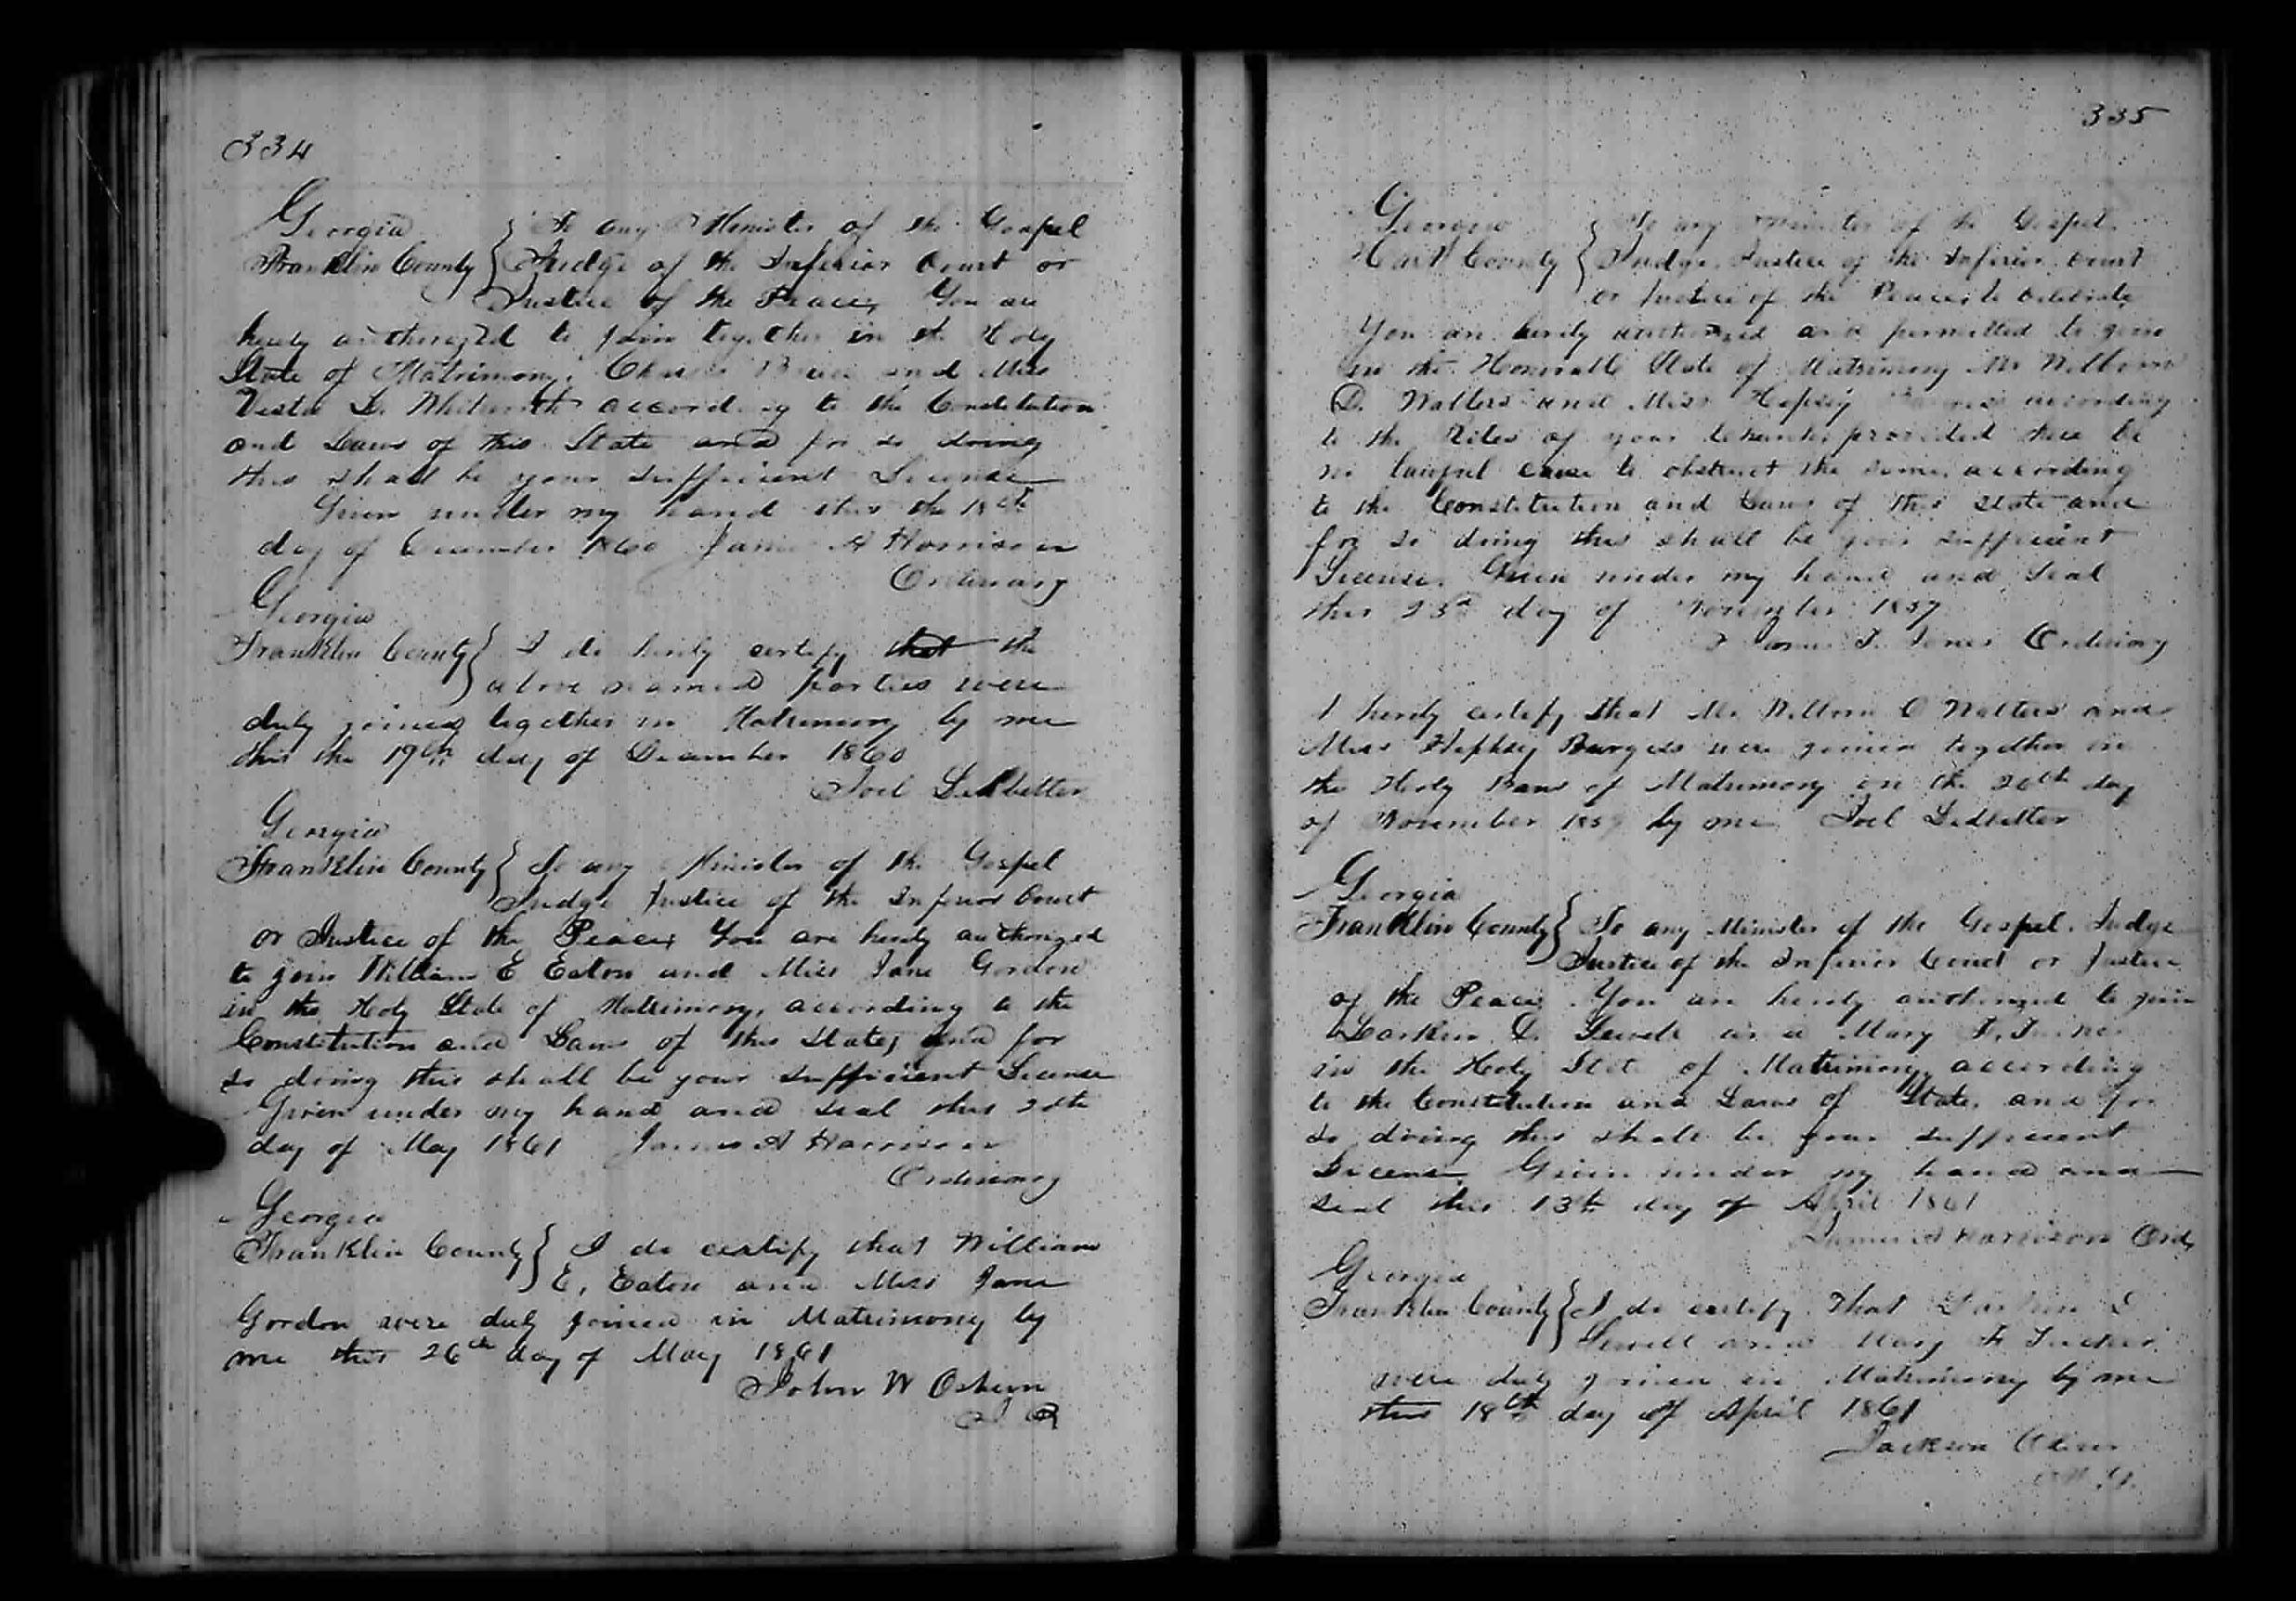 334
Georgia
Franklin County } To any Minister of the Gospel
Judge of the Inferior Court or
Justice of the Peace, You are
hereby authorized to join together in the Holy
State of Matrimony, and Miss
L. Whitworth according to the Constitution
and Laws of this State and for so doing
this shall be your sufficient License
Given under my hand this the 18th
day of December 1860 James A Harrison
Ordinary
Georgia
Franklin County } I do hereby certify that the
above named parties were
duly joined together in Matrimony by me
this the 19th day of December 1860
Joel Ledbetter
Georgia
Franklin County } To any Minister of the Gospel
Judge Justice of the Inferior Court
or Justice of the Peace, You are hereby authorized
to join William E Eaton and Miss Jane Gordon
in the Holy State of Matrimony, according to the
Constitution and Laws of this State, and for
so doing this shall be your sufficient License
Given under my hand and seal this 20th
day of May 1861 James A Harrison
Ordinary
Georgia
Franklin County } I do certify that William
E, Eaton and Miss Jane
Gordon were duly joined in Matrimony by
me this 26th day of May 1861
John W
335
Georgia
Hart County } To any Minister of the Gospel
Judge, Justice of the Inferior Court
or Justice of the Peace, to celebrate
You are hereby authorized and permitted to join
in the Honorable State of Matrimony Mr Wilborn
D. Walters and Miss Hepsey according
to the Rites of your provided there be
no lawful cause to obstruct the same, according
to the Constitution and Laws of this State and
for so doing this shall be your sufficient
License. Given under my hand and Seal
this 23d day of November 1857
Jones Ordinary
I hereby certify that Mr Wilborn D Walters and
Miss Hephsey Burgess were joined together in
the Holy Bans of Matrimony on the 26th day
of November by me Joel Ledbetter
Georgia
Franklin County } To any Minister of the Gospel, Judge
Justice of the Inferior Court or Justice
of the Peace, You are hereby authorized to join
Larkin D. Sewell and Mary F. Tucker
in the Holy State of Matrimony, according
to the Constitution and Laws of State, and for
so doing this shall be your sufficient
License, Given under my hand and
seal this 13th day of April 1861
James A Harrison Ord,
Georgia
Franklin County } I do certify that Larkin D
Sewell and Mary F Tucker
were duly joined in Matrimony by me
this 18th day of April 1861
Jackson
M. G.